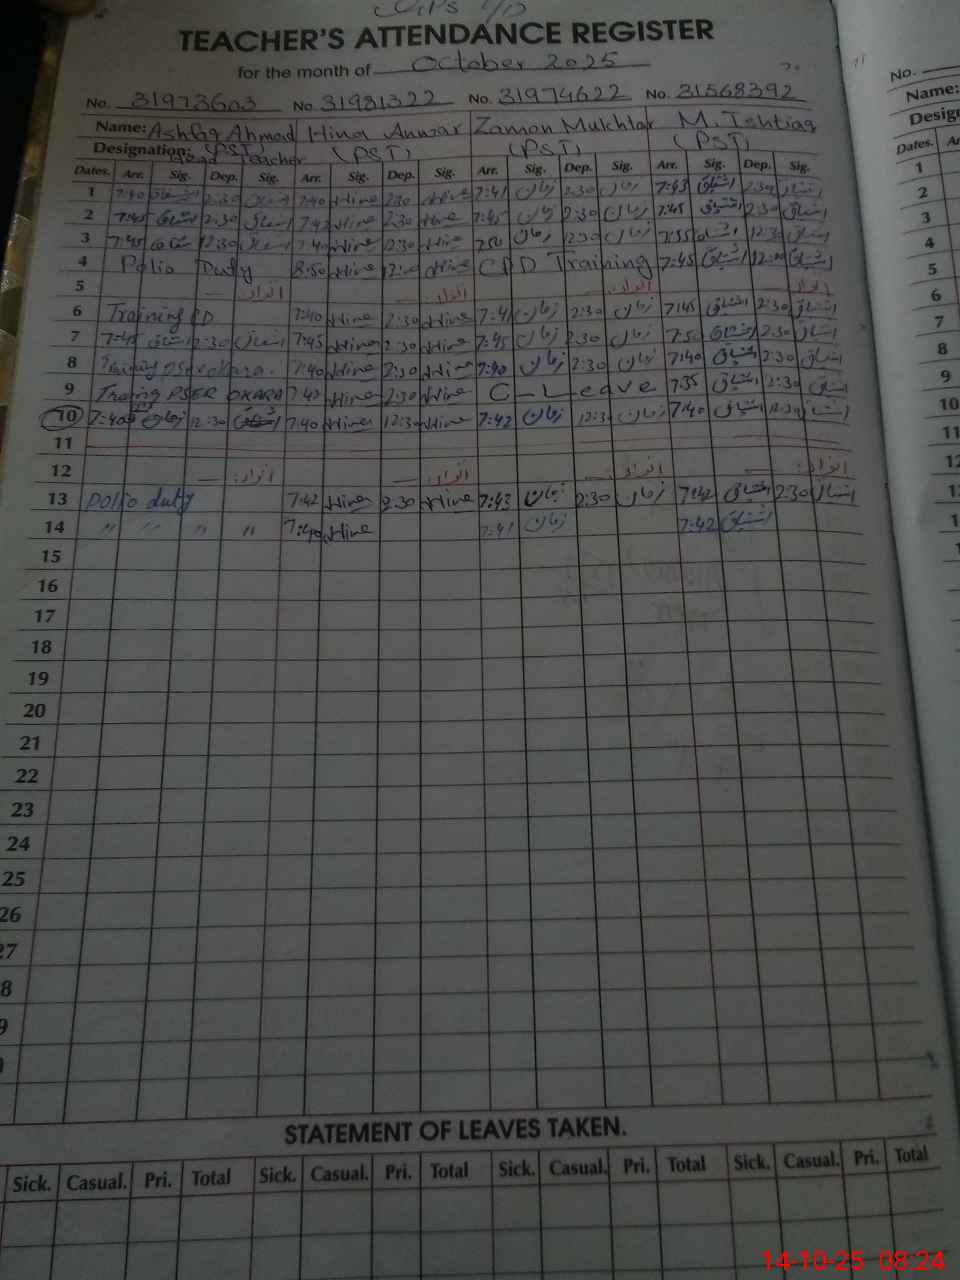 TEACHER'S ATTENDANCE REGISTER
for the month of October 2025
No. 31973603 No. 31981322 No. 31974622 No. 31568392 No.
Name: Ashfiq Ahmad Hina Anwar Zaman Mukhtar M. Ishtiaq Name:
Designation: (PST) Head Teacher (PST) (PST) (PST)
Dates. Arr. Sig. Dep. Sig. Arr. Sig. Dep. Sig. Arr. Sig. Dep. Sig. Arr. Sig. Dep. Sig. Dates.
1 7:40 اشفاق 2:30 اشفاق 7:40 Hina 2:30 Hina 7:41 زمان 2:30 زمان 7:43 اشتیاق 2:30 اشتیاق 1
2 7:45 اشفاق 2:30 اشفاق 7:42 Hina 2:30 Hina 7:45 زمان 2:30 زمان 7:45 اشتیاق 2:30 اشتیاق 2
3 7:45 اشفاق 12:30 اشفاق 7:40 Hina 12:30 Hina 7:50 زمان 12:30 زمان 7:55 اشتیاق 12:30 اشتیاق 3
4 Polio Duty 8:50 Hina 12:00 Hina CPD Training 7:45 اشتیاق 12:00 اشتیاق 4
5 اتوار اتوار اتوار اتوار 5
6 Training 7:40 Hina 2:30 Hina 7:41 زمان 2:30 زمان 7:45 اشتیاق 2:30 اشتیاق 6
7 7:45 اشفاق 2:30 اشفاق 7:45 Hina 2:30 Hina 7:45 زمان 2:30 زمان 7:50 اشتیاق 2:30 اشتیاق 7
8 Training PSER Okara. 7:40 Hina 2:30 Hina 7:40 زمان 2:30 زمان 7:40 اشتیاق 2:30 اشتیاق 8
9 Traing PSER OKARA 7:42 Hina 2:30 Hina C-Leave 7:35 اشتیاق 2:30 اشتیاق 9
10 7:40 12:30 7:40 Hina 12:30 Hina 7:42 زمان 12:30 زمان 7:40 اشتیاق 12:30 اشتیاق 10
11 11
12 اتوار اتوار اتوار اتوار 12
13 Polio duty 7:42 Hina 2:30 Hina 7:43 زمان 2:30 زمان 7:42 اشتیاق 2:30 اشتیاق
14 " " " " 7:40 Hina 7:41 زمان 7:42 اشتیاق
15
16
17
18
19
20
21
22
23
24
25
26
27
8
9
STATEMENT OF LEAVES TAKEN.
Sick. Casual. Pri. Total Sick. Casual. Pri. Total Sick. Casual. Pri. Total Sick. Casual. Pri. Total
14-10-25 08:24